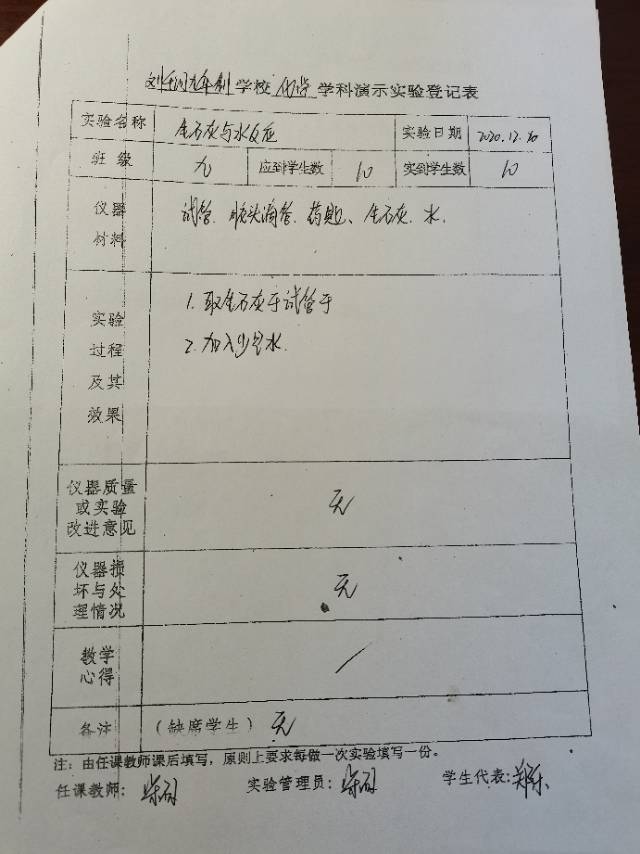 九年制学校 化学 学科演示实验登记表
实验名称 生石灰与水反应 实验日期 2020.12.10
班级 九 应到学生数 10 实到学生数 10
仪器 试管. 胶头滴管. 药匙、生石灰. 水.
材料
实验 1. 取生石灰于试管于
过程 2. 加入少量水.
及其
效果
仪器质量
或实验 无
改进意见
仪器损
坏与处 无
理情况
教学 /
心得
备注 (缺席学生) 无
注：由任课教师课后填写，原则上要求每做一次实验填写一份。
任课教师： 实验管理员： 学生代表: